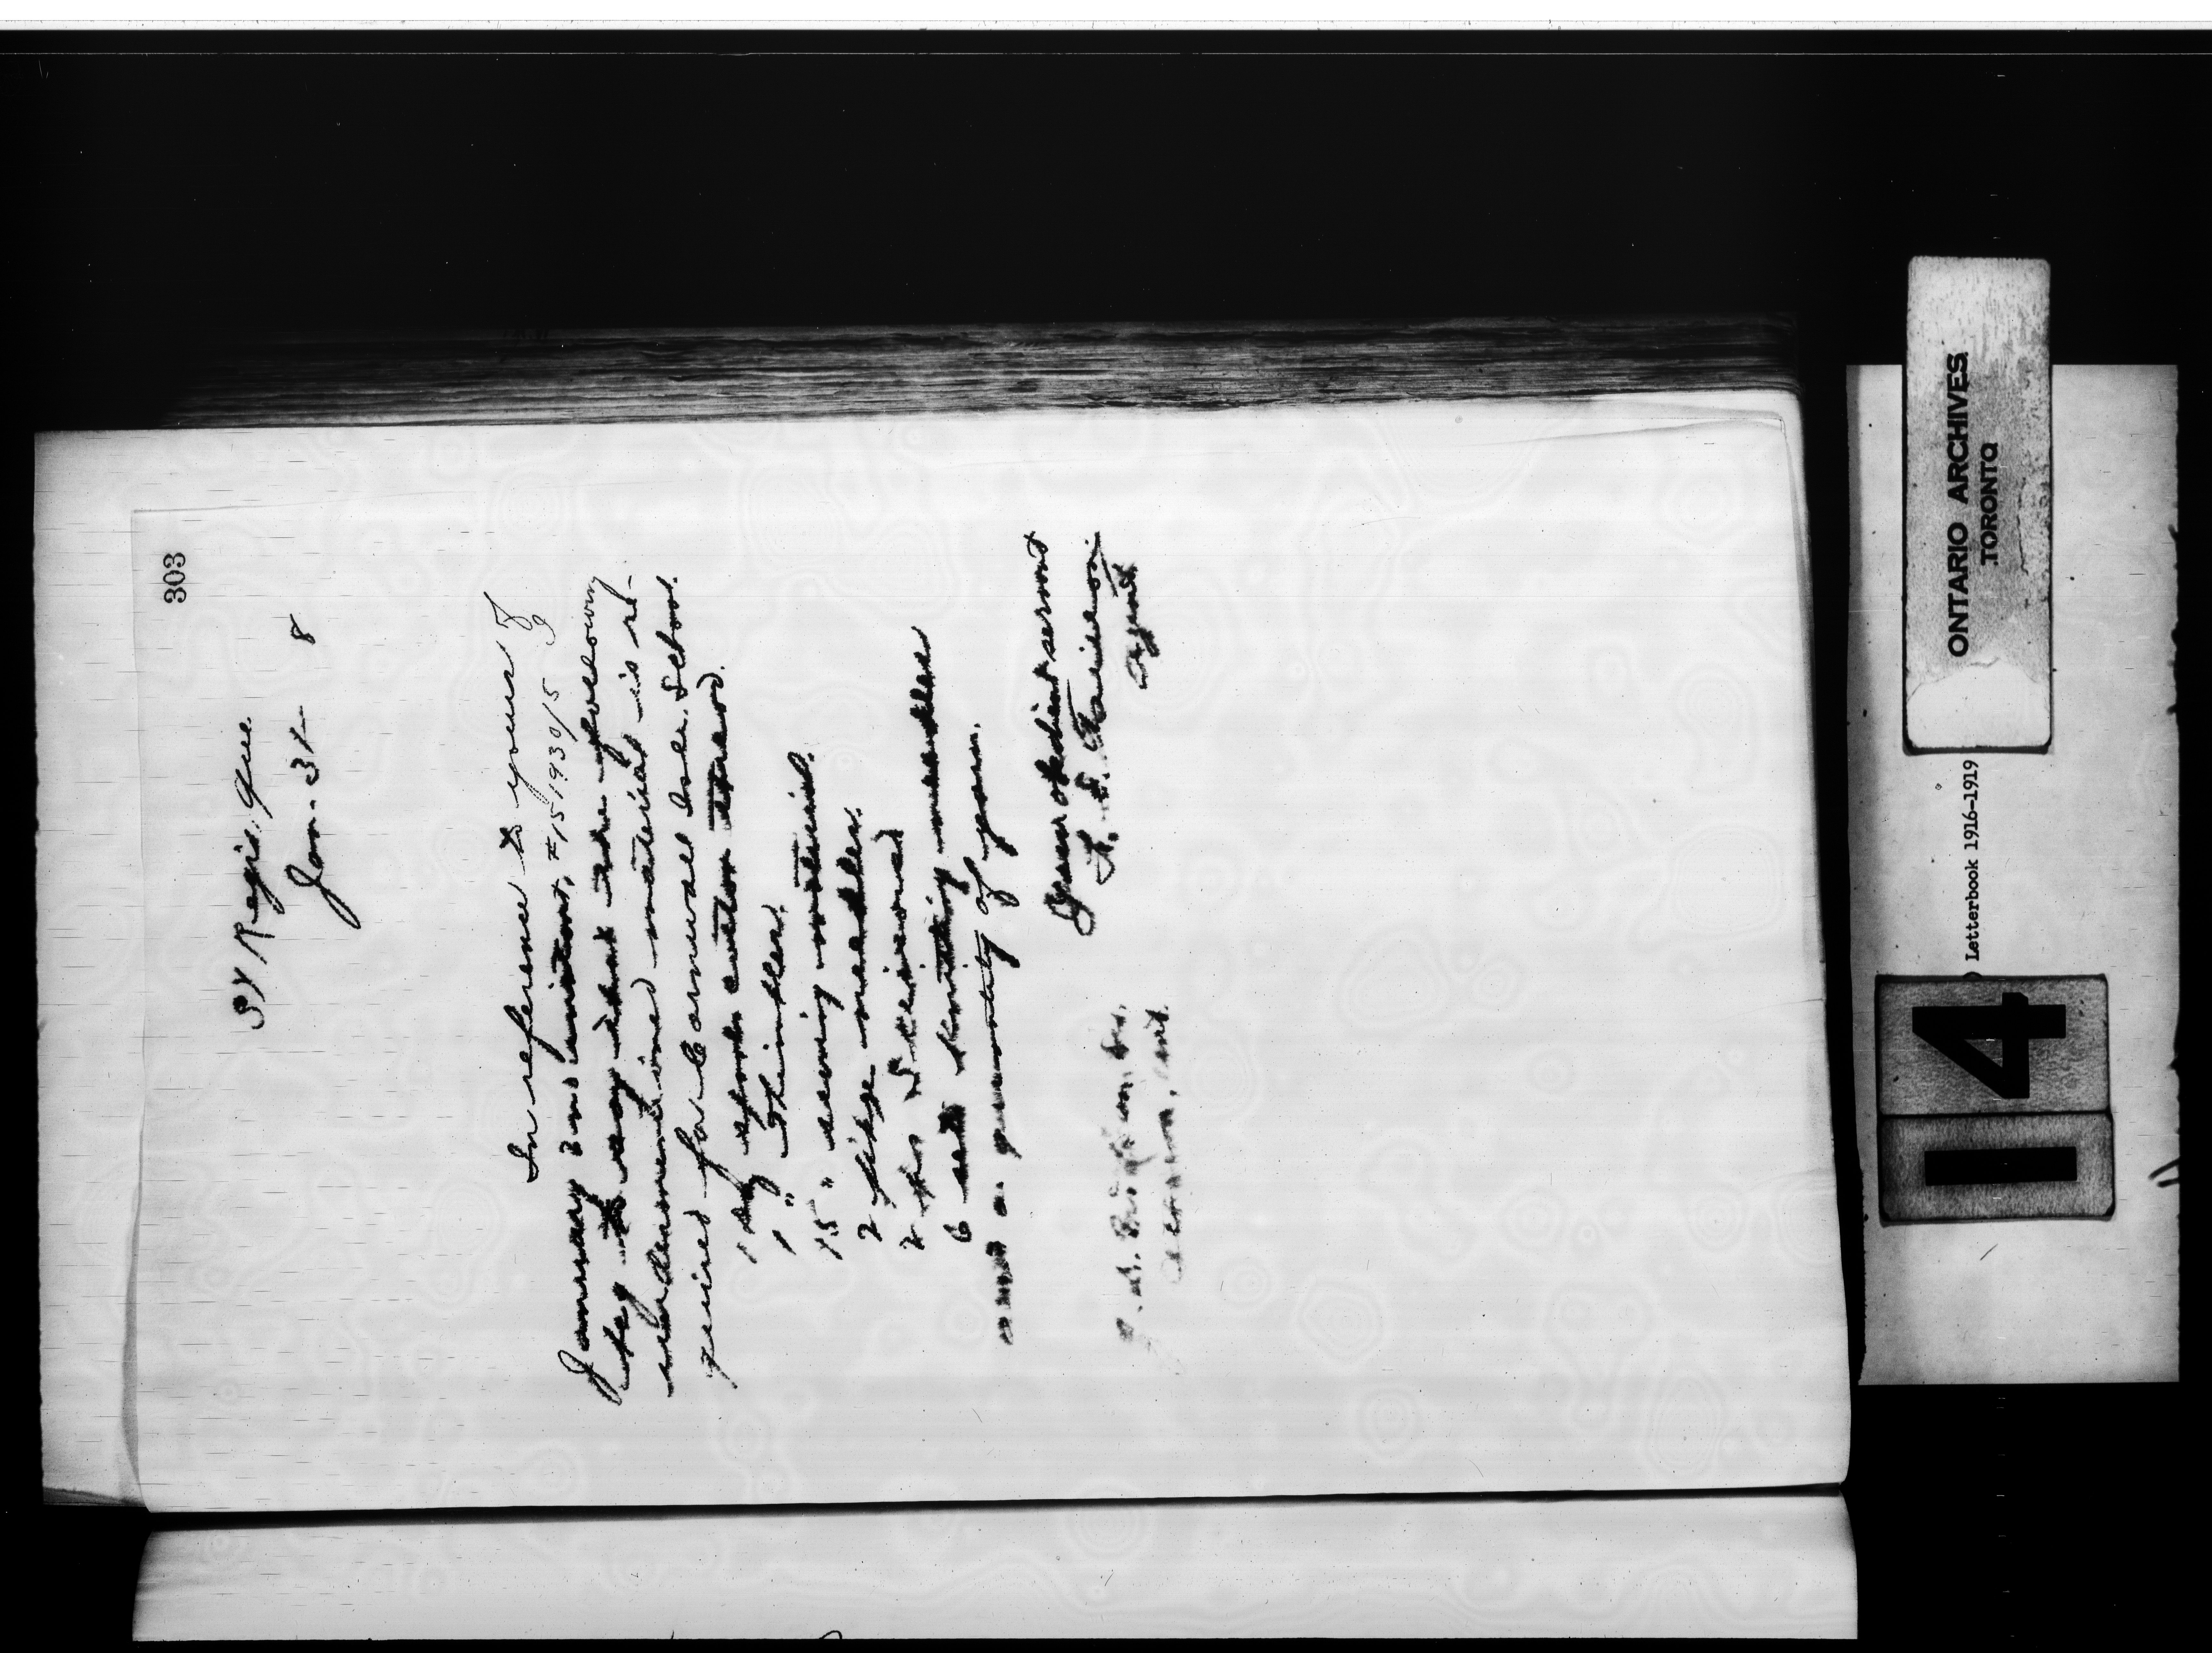 303
St Regis, Que
Jan. 31- 8
In reference to yours of
January 2nd instant, #151930/5 I
beg to say that the following
undermentioned material is re-
quired for Cornwall Isle. School.
1 doz spools cotton thread.
1 " Thimbles.
15 " sewing material.
2 pkgs needles.
2 prs Scissors
6 sets knitting needles
and a quantity of yarn.
Your obedient servant
Agent
Ottawa, Ont.
ONTARIO ARCHIVES
TORONTO
Letterbook 1916-1919
14